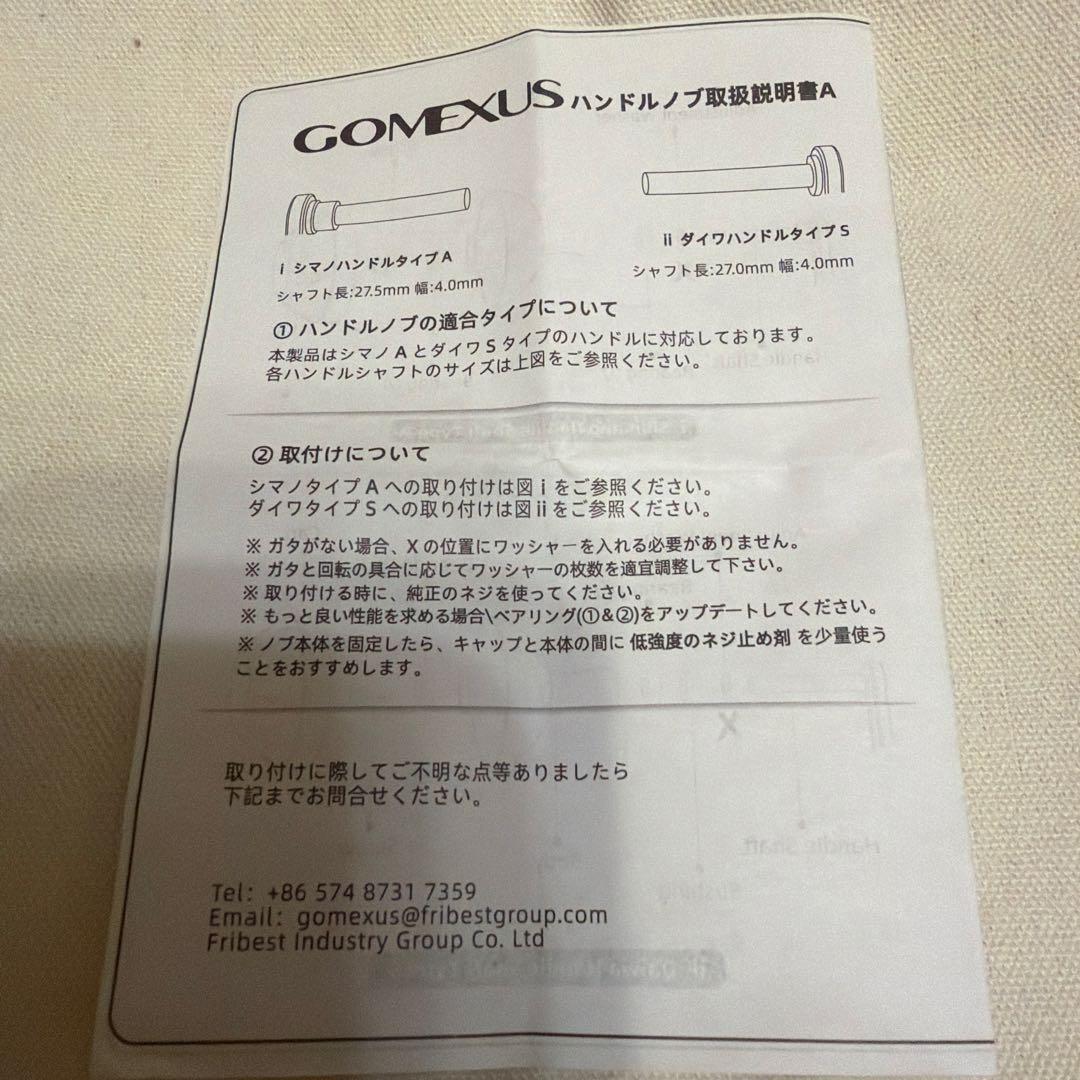 GOMEXUS ハンドルノブ取扱説明書A
i シマノハンドルタイプA
シャフト長:27.5mm 幅:4.0mm
ii ダイワハンドルタイプS
シャフト長:27.0mm 幅:4.0mm
① ハンドルノブの適合タイプについて
本製品はシマノAとダイワSタイプのハンドルに対応しております。
各ハンドルシャフトのサイズは上図をご参照ください。
② 取付けについて
シマノタイプAへの取り付けは図iをご参照ください。
ダイワタイプSへの取り付けは図iiをご参照ください。
※ ガタがない場合、Xの位置にワッシャーを入れる必要がありません。
※ ガタと回転の具合に応じてワッシャーの枚数を適宜調整して下さい。
※ 取り付ける時に、純正のネジを使ってください。
※ もっと良い性能を求める場合\ベアリング(①&②)をアップデートしてください。
※ ノブ本体を固定したら、キャップと本体の間に 低強度のネジ止め剤 を少量使う
ことをおすすめします。
取り付けに際してご不明な点等ありましたら
下記までお問合せください。
Tel: +86 574 8731 7359
Email: gomexus@fribestgroup.com
Fribest Industry Group Co. Ltd